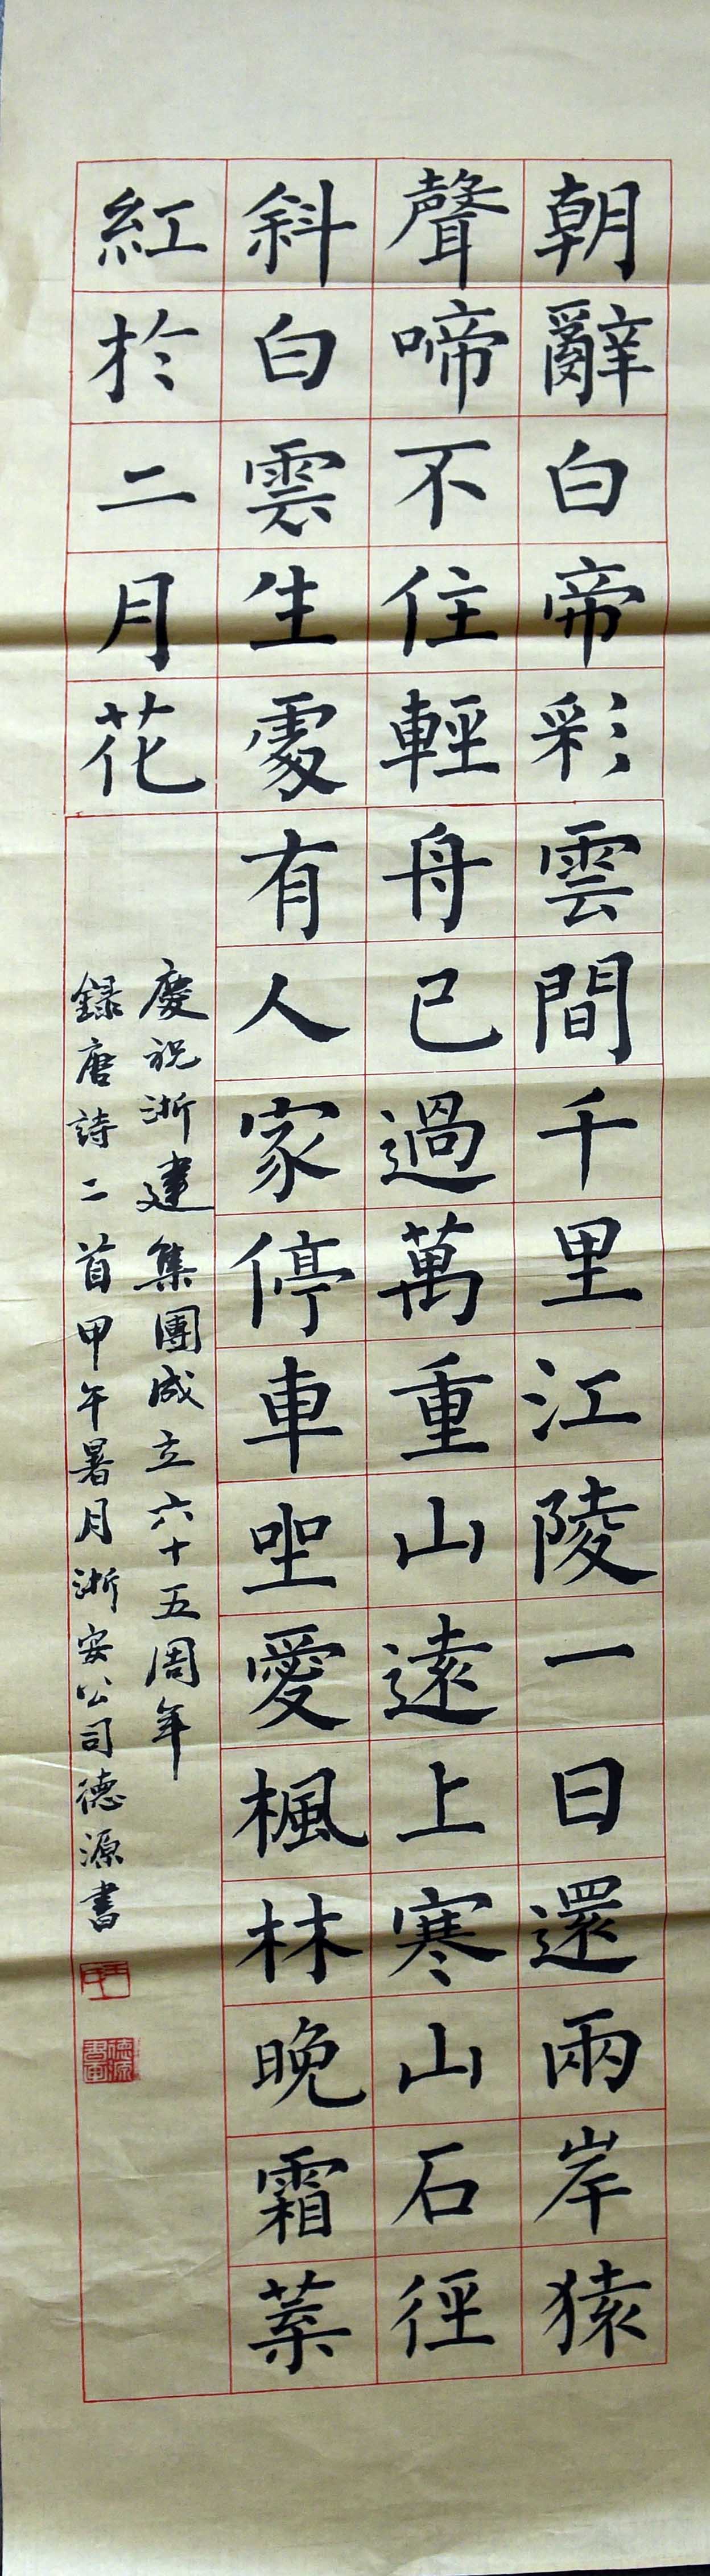 朝辭白帝彩雲間千里江陵一日還兩岸猿
聲啼不住輕舟已過萬重山遠上寒山石徑
斜白雲生處有人家停車坐愛楓林晚霜葉
紅於二月花
慶祝浙建集團成立六十五周年
録唐詩二首甲午暑月浙安公司德源書